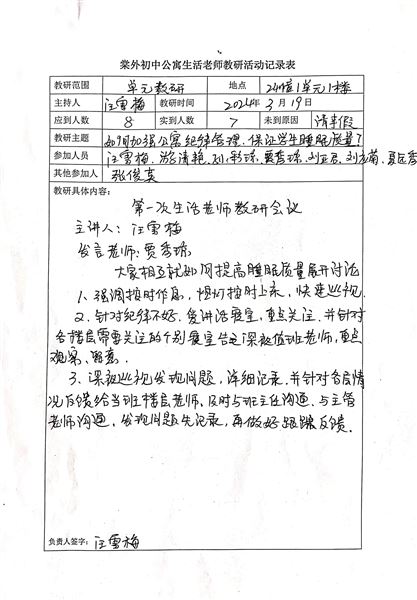 棠外初中公寓生活老师教研活动记录表
教研范围 单元教研 地点 24幢1单元1楼
主持人 汪雪梅 教研时间 2024年3月19日
应到人数 8 实到人数 7 未到原因 请事假
教研主题 如何加强公寓纪律管理、保证学生睡眠质量?
参加人员 汪雪梅、游清艳、孙彩琼、贾秀琼、刘
其他参加人 张俊英
教研具体内容:
第一次生活老师教研会议
主讲人:汪雪梅
发言老师:贾秀琼
大家相互就如何提高睡眠质量展开讨论
1、强调按时作息,熄灯按时上床,快速巡视.
2、针对纪律不好、爱讲话寝室,重点关注,并针对
各楼层需要关注的个别寝室告之深夜值班老师,重点
观察、留意.
3、深夜巡视发现问题,详细记录,并针对各层情
况反馈给当班楼层老师,及时与班主任沟通、与主管
老师沟通,发现问题先记录,再做好跟踪反馈.
负责人签字:汪雪梅